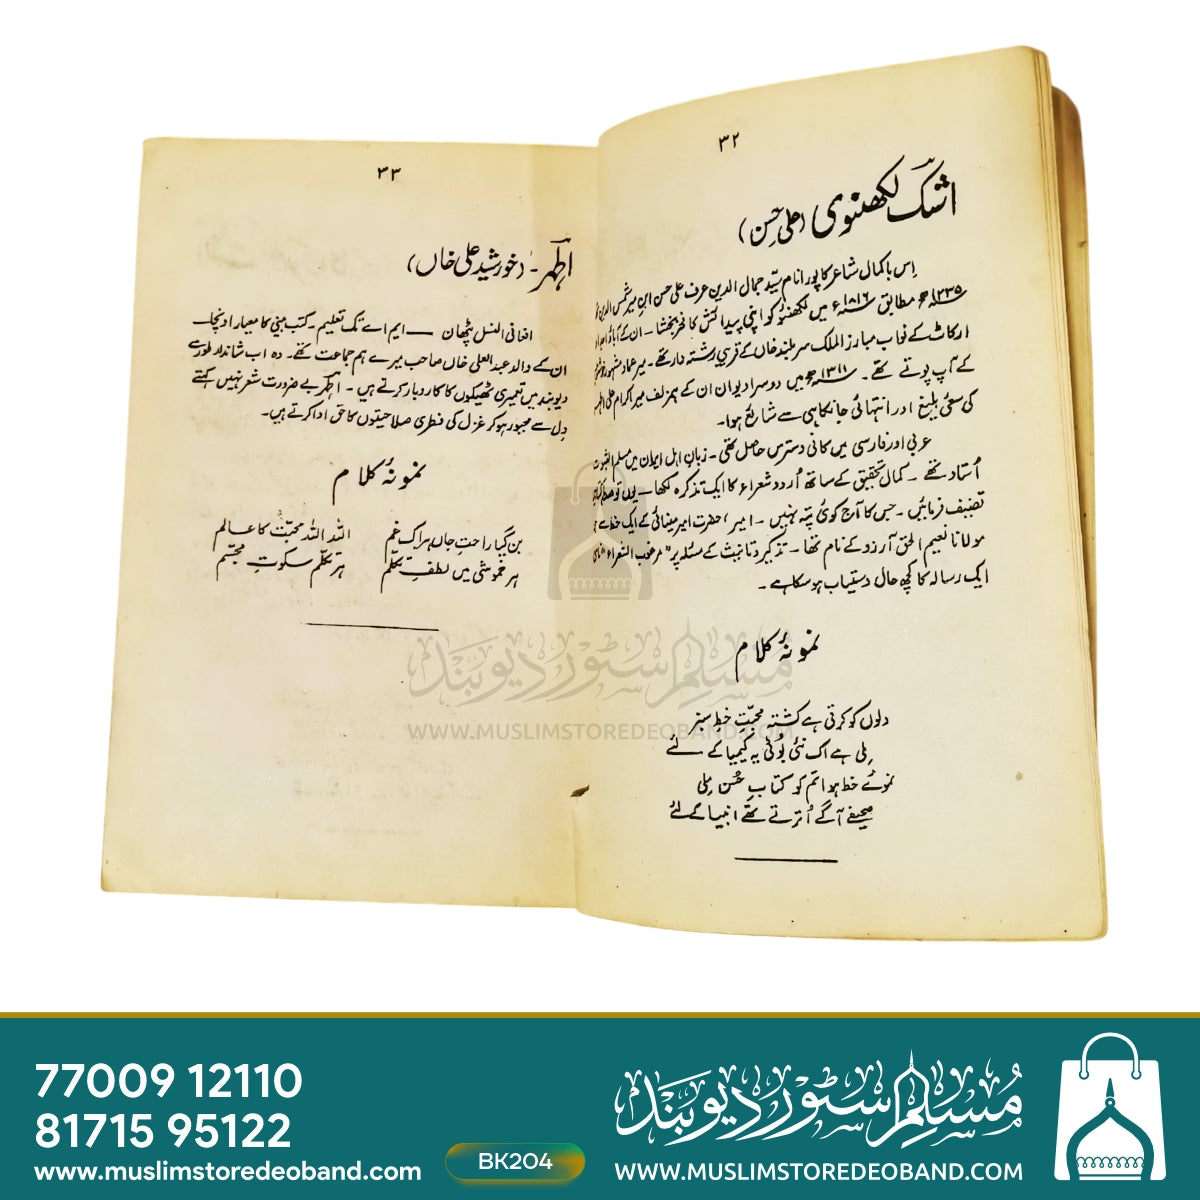 ۳۲
اشک لکھنوی (علی حسن)
اس باکمال شاعر کا پورا نام سید جمال الدین عرف علی حسن ابن میر شمس الدین
۱۲۳۵ھ مطابق ۱۸۱۶ء میں لکھنؤ کو اپنی پیدائش کا فخر بخشا۔ ان کے آباؤ اجداد
ارکاٹ کے نواب مبارز الملک سربلند خاں کے قریبی رشتہ دار تھے۔ میر عماد مشہور
کے آپ پوتے تھے۔ ۱۳۱۱ھ میں دوسرا دیوان ان کے ہمزلف میر اکرام علی
کی سعیٔ بلیغ اور انتہائی جانکاہی سے شایع ہوا۔
عربی اور فارسی میں کافی دسترس حاصل تھی۔ زبان اہل ایران میں مسلم الثبوت
اُستاد تھے۔ کمال تحقیق کے ساتھ اُردو شعراء کا ایک تذکرہ لکھا۔ یوں تو
تصنیف فرمائیں۔ جس کا آج کوئی پتہ نہیں۔ امیر، حضرت امیر مینائی کے ایک خط سے جو
مولانا نعیم الحق آرزو کے نام تھا۔ تذکیر و تانیث کے مسئلہ پر "مرغوب الشعراء" نامی
ایک رسالہ کا کچھ حال دستیاب ہو سکا ہے۔
نمونۂ کلام
دلوں کو کرتی ہے کشتہ محبت خط سبز
ملی ہے اک نئی بُوٹی یہ کیمیا کے لئے
نموئے خط ہوا تم کو کتابِ حُسن ملی
صحیفے آگے اُترتے تھے انبیا کے لئے
۳۳
اطہر۔ (خورشید علی خاں)
افغانی النسل پٹھان — ایم اے تک تعلیم۔ کتب بینی کا معیار اونچا۔
ان کے والد عبد العلی خاں صاحب میرے ہم جماعت تھے۔ وہ اب شاندار طور سے
دیوبند میں تعمیری ٹھیکوں کا کاروبار کرتے ہیں۔ اطہر بے ضرورت شعر نہیں کہتے
دل سے مجبور ہو کر غزل کی فطری صلاحیتوں کا حق ادا کرتے ہیں۔
نمونۂ کلام
بن گیا راحتِ جاں ہر اک غم اللہ اللہ محبّت کا عالم
ہر خموشی میں لطفِ تکلّم ہر تکلّم سکوتِ مجسّم
مسلم سٹور دیوبند
WWW.MUSLIMSTOREDEOBAND.COM
77009 12110
81715 95122
www.muslimstoredeoband.com
BK204
مسلم سٹور دیوبند
WWW.MUSLIMSTOREDEOBAND.COM